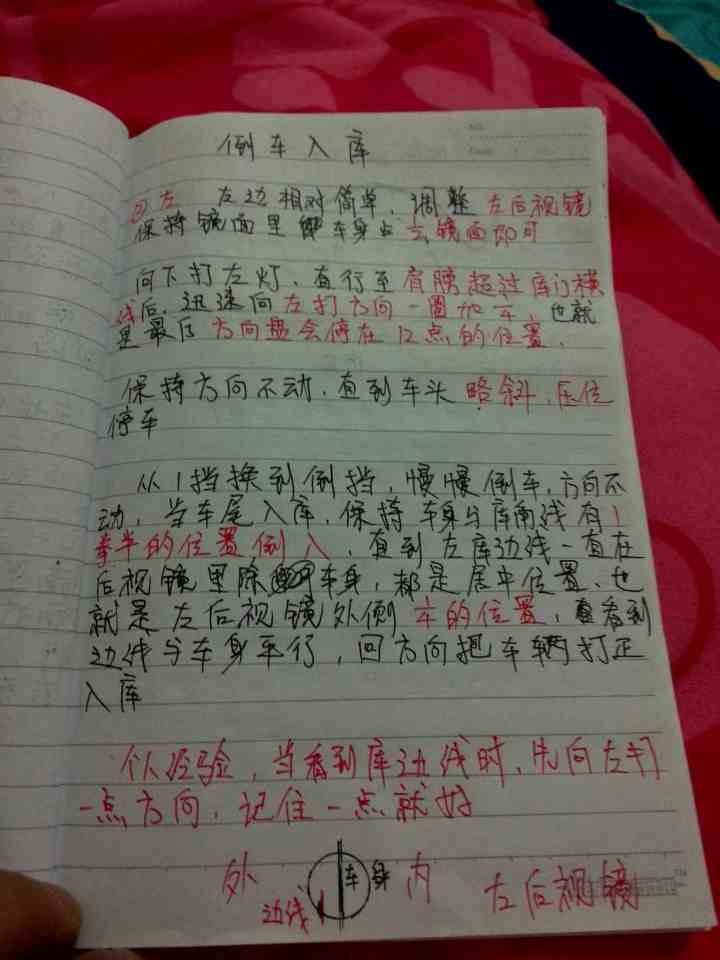 倒车入库
②左 左边相对简单，调整左后视镜
保持镜面里车身占镜面即可
向下打左灯，直行至肩膀超过库门横
线后，迅速向左打方向一圈加，也就
是最后方向盘会停在12点的位置．
保持方向不动，直到车头略斜，压位
停车
从1挡换到倒挡，慢慢倒车，方向不
动，当车尾入库，保持车身与库角线有1
拳半的位置倒入，直到左库边线一直在
后视镜里除车身，都是居中位置，也
就是左后视镜外侧的位置，直看到
边线与车身平行，回方向把车辆打正
入库
个人经验，当看到库边线时，先向左打
一点方向，记住一点就好
外 车身 内 左后视镜
边线